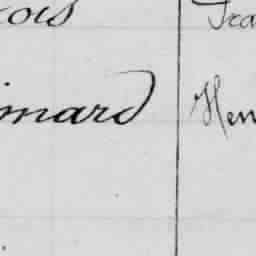 cois Fra
imard Hen